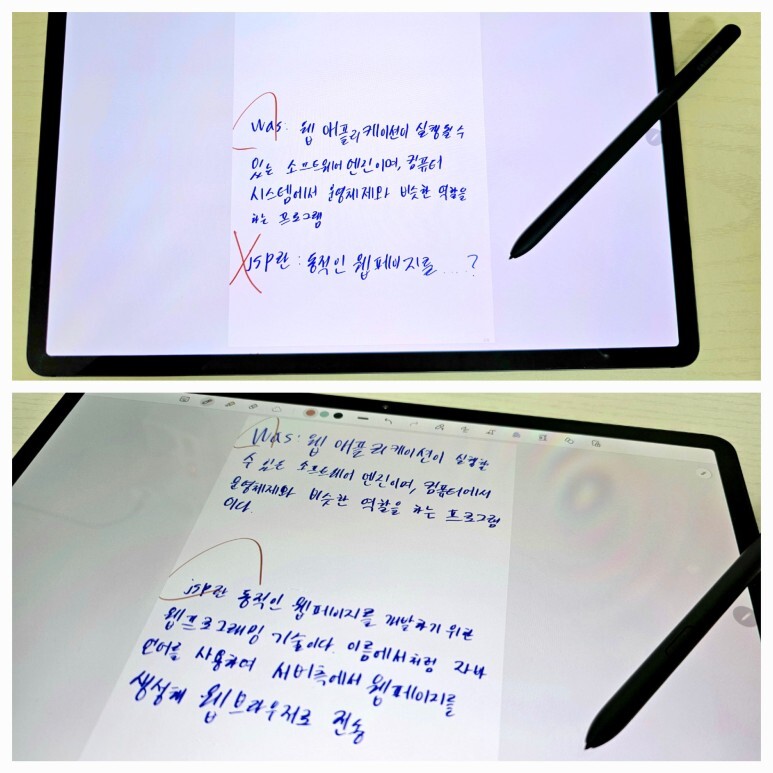 Was: 웹 애플리케이션이 실행될 수
있는 소프트웨어 엔진이며, 컴퓨터
시스템에서 운영체제와 비슷한 역할을
하는 프로그램
jsp란: 동적인 웹페이지를 .... ?
Was: 웹 애플리케이션이 실행될
수 있는 소프트웨어 엔진이며, 컴퓨터에서
운영체제와 비슷한 역할을 하는 프로그램
이다.
jsp란 동적인 웹페이지를 개발하기 위한
웹프로그래밍 기술이다. 이름에서처럼 자바
언어를 사용하여 서버측에서 웹페이지를
생성해 웹브라우저로 전송